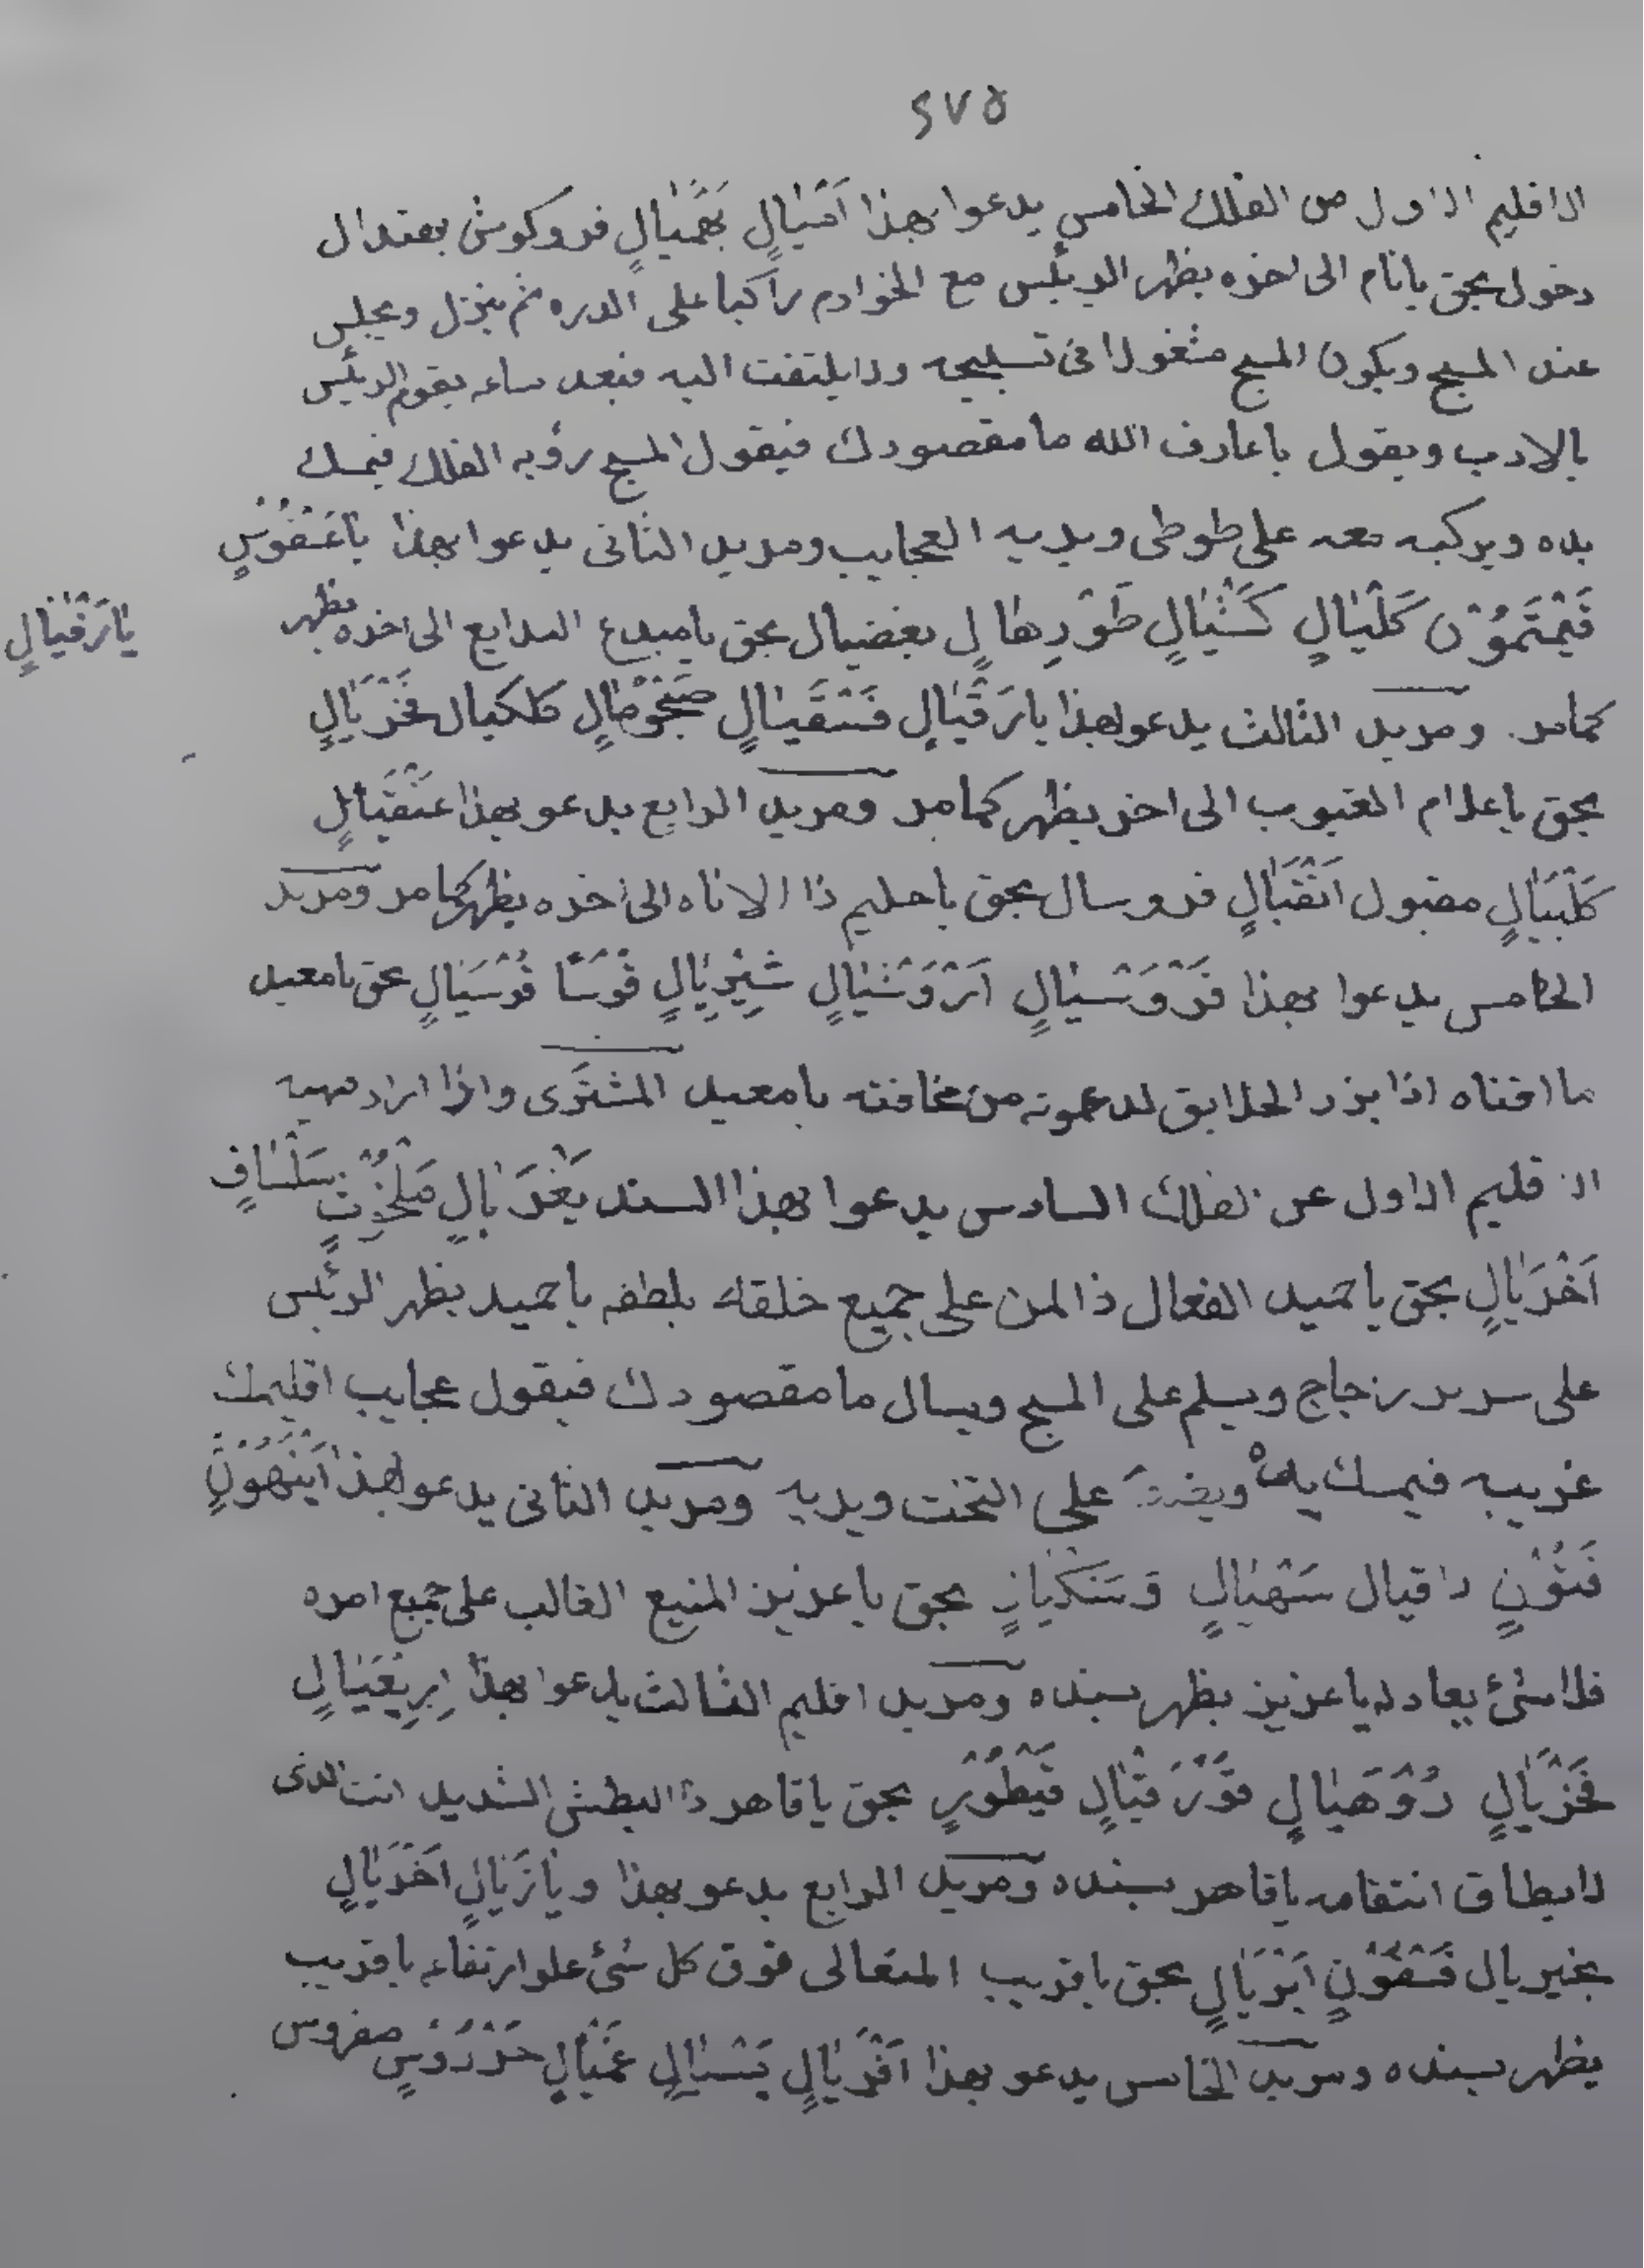 ٢٧٥
الاقليم الاول من الفلك الخامس يدعوا بهذا اَقْيَالٍ بَهْمَيَالٍ فروكوش بعقدال
دخول بحق ياتام الى اخره يظهر الرئيس مع الخوادم راكبا على الدره ثم ينزل ويجلس
عند المسبح ويكون المسبح مشغولا في تسبيحه ولا يلتفت اليه فبعد ساعه يقوم الرئيس
بالادب ويقول ياعارف الله ما مقصودك فيقول المسبح رؤيه الفلك فيمسك
يده ويركبه معه على طوطى ويريه العجايب ومريد الثانى يدعوا بهذا ياعَنْقُوْسٍ
فَيْمَتَمُوْنٍ كَلْيَالٍ كَشْيَالٍ طَوْرِهَالٍ بغضيال بحق يامبدع البدايع الى اخره يظهر
يَارَقْيَالٍ
كمامر. ومريد الثالث يدعو بهذا يارَقْيَالٍ فَسْتَقْيَالٍ كلكيال فَخْرَيَالٍ
بحق ياعلام الغيوب الى اخر يظهر كمامر ومريد الرابع يدعو بهذا عَنْقَيَالٍ
كَلْبَيَالٍ مقبول اَنْقَيَالٍ فروسال بحق ياحليم ذا الاناه الى اخره يظهر كمامر ومريد
الخامس يدعوا بهذا فَرْوَشْيَالٍ اَرْوَشْيَالٍ شِيْرِيَالٍ قَوْسًا قَوْسَيَالٍ بحق يامعيد
ما افناه اذا برز الخلايق لدعوته من مخافته يامعيد المشترى واذا اراد
الاقليم الاول من الفلك السادس يدعوا بهذا السند يَغْرَيَالٍ سَلْسَافٍ
اَخْرَيَالٍ بحق ياحميد الفعال ذالمن على جميع خلقك بلطفه ياحميد يظهر الرئيس
على سرير زجاج ويسلم على المسبح ويسال ما مقصودك فيقول عجايب اقليمك
غريبه فيمسك يده على التخت ويريه ومريد الثانى يدعو بهذا اَيْنَهُوْنٍ
فَنُوْنٍ داقيال سَهْيَالٍ وَسَنْكَيَانٍ بحق ياعزيز المنيع الغالب على جميع امره
فلا شئ يعادله ياعزيز يظهر بسنده ومريد اقليم الثالث يدعوا بهذا اِبرِيْعَيَالٍ
فَخْرَيَالٍ رُوْهَيَالٍ قَوْرَقْيَالٍ قَيْطُوْرٍ بحق ياقاهر ذا البطش الشديد انت الذى
لايطاق انتقامه ياقاهر بسنده ومريد الرابع يدعو بهذا ويَازَيَالٍ اَخْرَيَالٍ
بخيريال فَسْقُوْنٍ اَبْرَيَالٍ بحق ياقريب المتعالى فوق كل شئ علو ارتفاعه ياقريب
يظهر بسنده ومريد الخامس يدعو بهذا اَفْرَيَالٍ يَسْيَالٍ عَمْيَالٍ حَرْدَوْسٍ صفروس